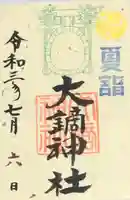 夏詣
大鏑神社
令和三年七月
六日